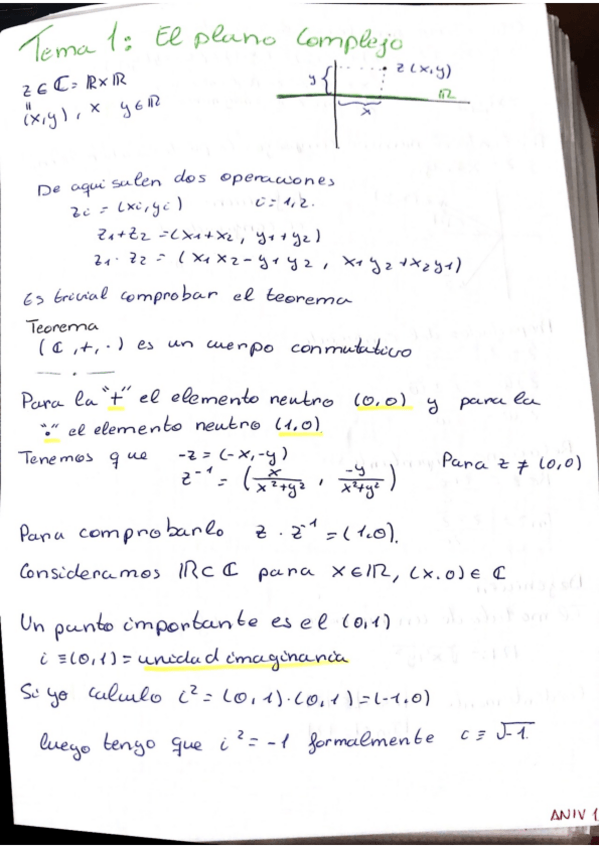 Tema 1: El plano complejo
z ∈ ℂ = ℝ×ℝ
"
(x,y), x y ∈ ℝ
y { z(x,y)
ℝ
x
De aqui salen dos operaciones
zi = (xi, yi) i = 1,2.
z1+z2 = (x1+x2, y1+y2)
z1 · z2 = (x1x2 - y1y2, x1y2 + x2y1)
Es trivial comprobar el teorema
Teorema
(ℂ, +, ·) es un cuerpo conmutativo
Para la "+" el elemento neutro (0,0) y para la
"·" el elemento neutro (1,0)
Tenemos que -z = (-x,-y) Para z ≠ (0,0)
z⁻¹ = (x/(x²+y²), -y/(x²+y²))
Para comprobarlo z · z⁻¹ = (1.0).
Consideramos ℝ⊂ℂ para x∈ℝ, (x.0) ∈ ℂ
Un punto importante es el (0,1)
i ≡ (0,1) = unidad imaginaria
Si yo calculo i² = (0,1)·(0,1) = (-1,0)
luego tengo que i² = -1 formalmente i ≡ √-1.
ANIV 1